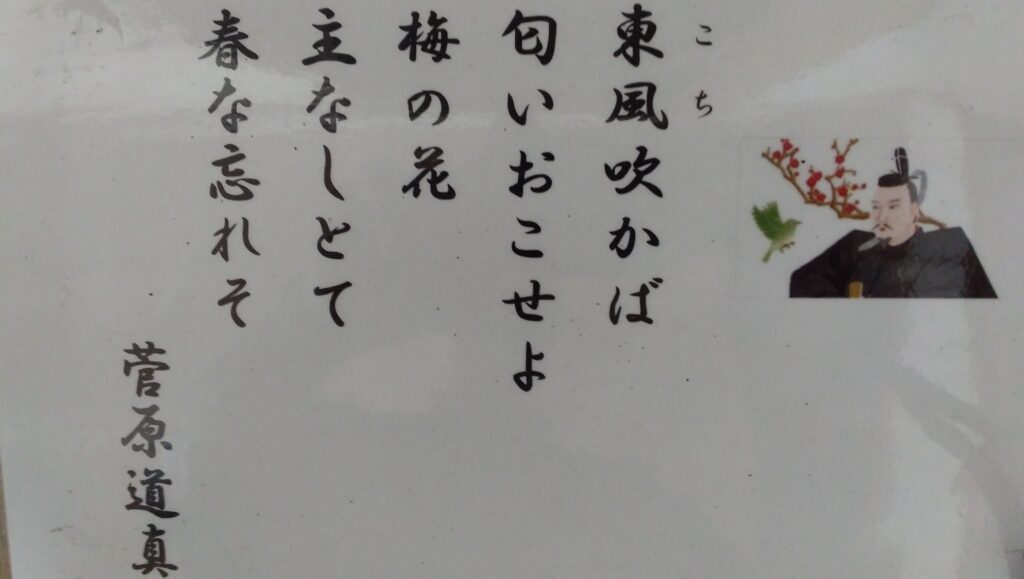 こち
東風吹かば
匂いおこせよ
梅の花
主なしとて
春な忘れそ
菅原道真